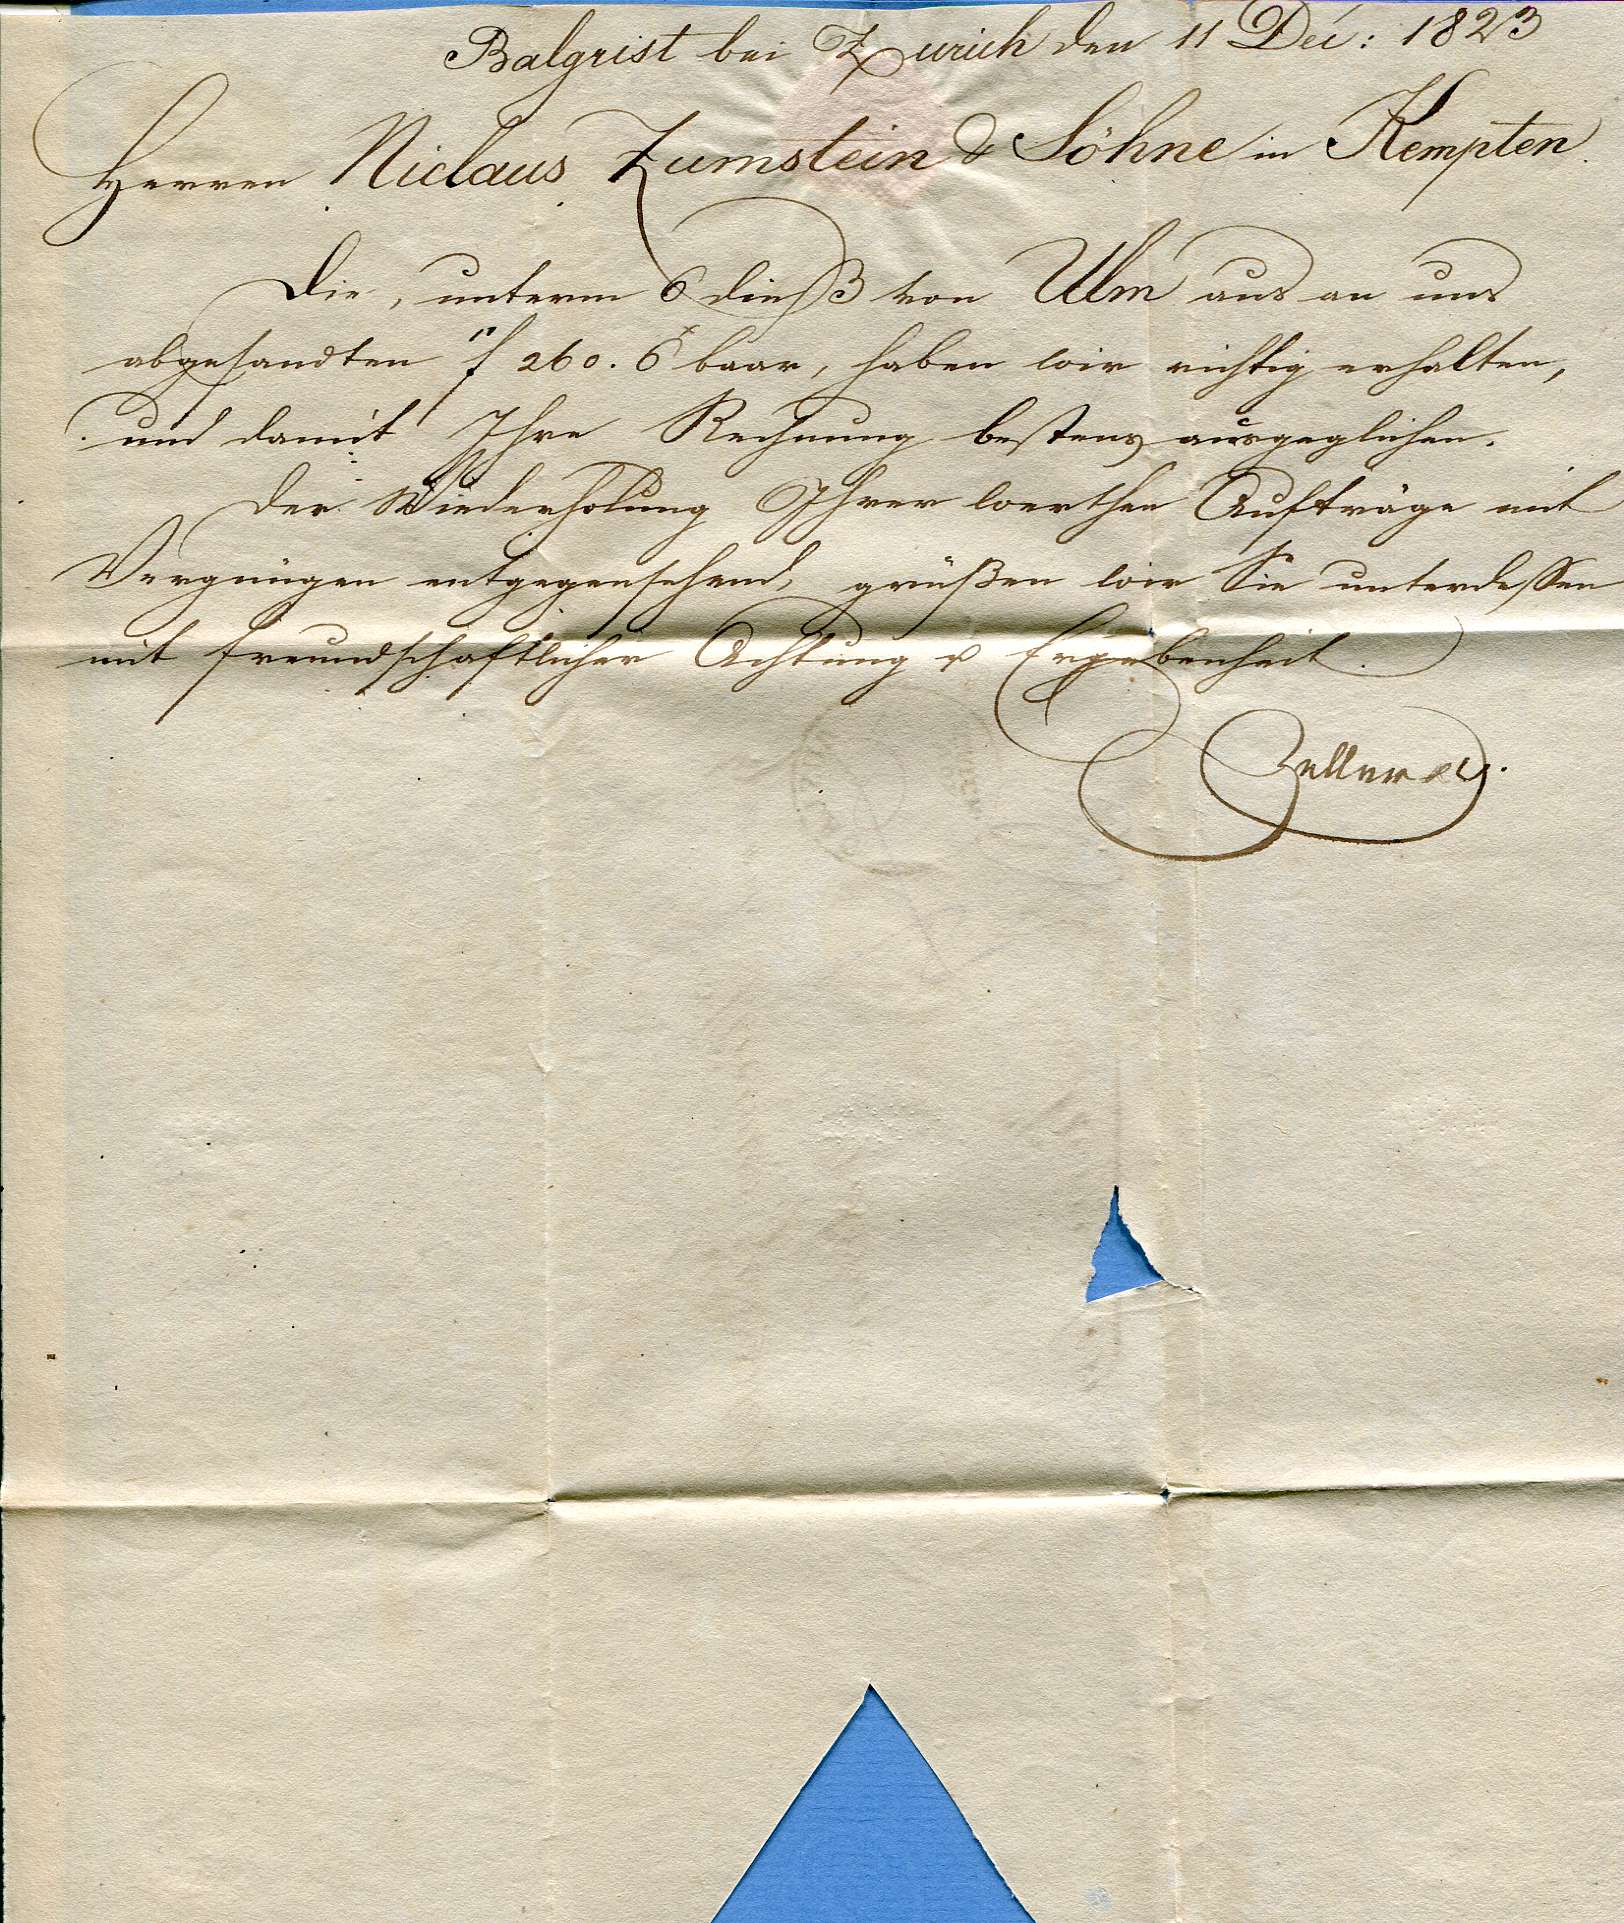 Balgrist bei Zurich den 11 Dec: 1823
Herren Niclaus Zumstein & Söhne in Kempten.
Die, unterm 6 dieß von Ulm aus an uns
abgesandten f 260. 6 x baar, haben wir richtig erhalten,
und damit Ihre Rechnung bestens ausgeglichen.
Der Wiederholung Ihrer werthen Aufträge mit
Vergnügen entgegensehend, grüßen wir Sie unterdessen
mit freundschaftlicher Achtung & Ergebenheit.
Zeller